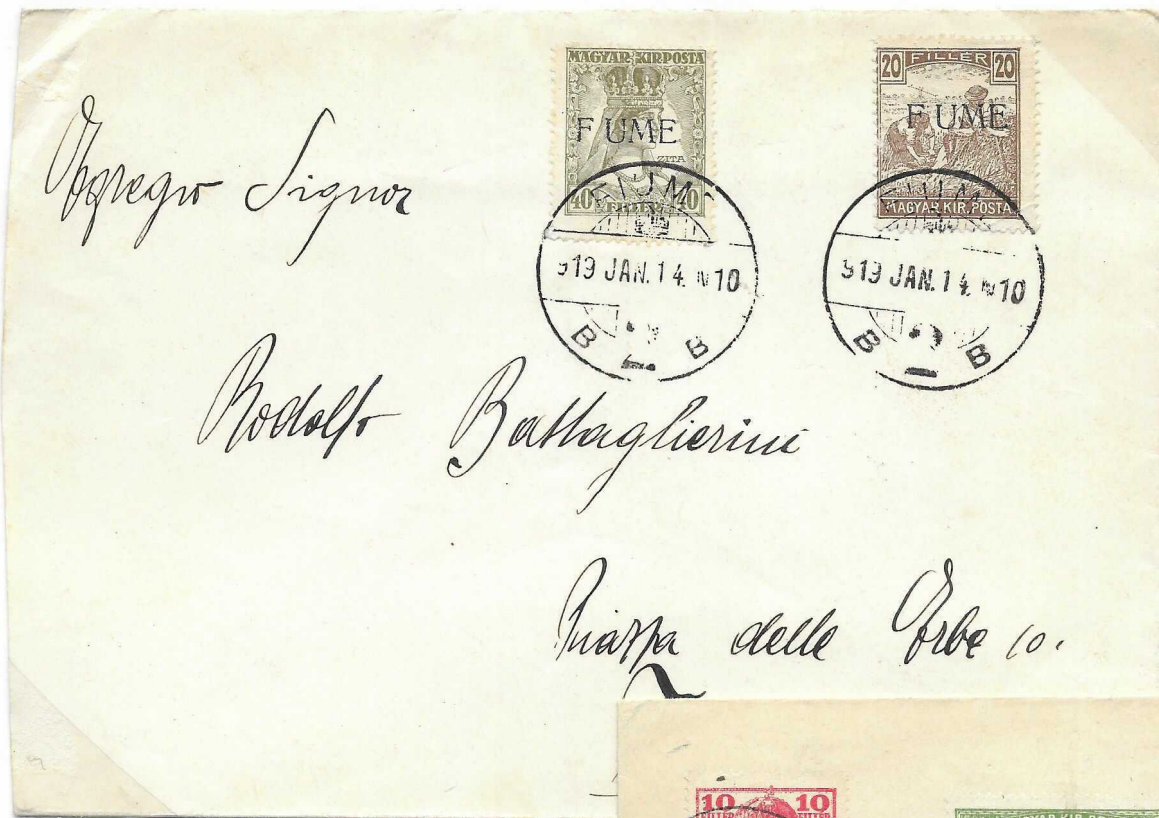 MAGYAR KIR POSTA
F UME
ZITA
40 40
20 FILLÉR 20
F UME
MAGYAR.KIR.POSTA
FIUM
919 JAN. 14. N10
B B
FIUM
919 JAN. 14. N10
B B
Egregio Signor
Rodolfo Battaglierini
Piazza delle Erbe 10.
10 10
FILLÉR FILLÉR